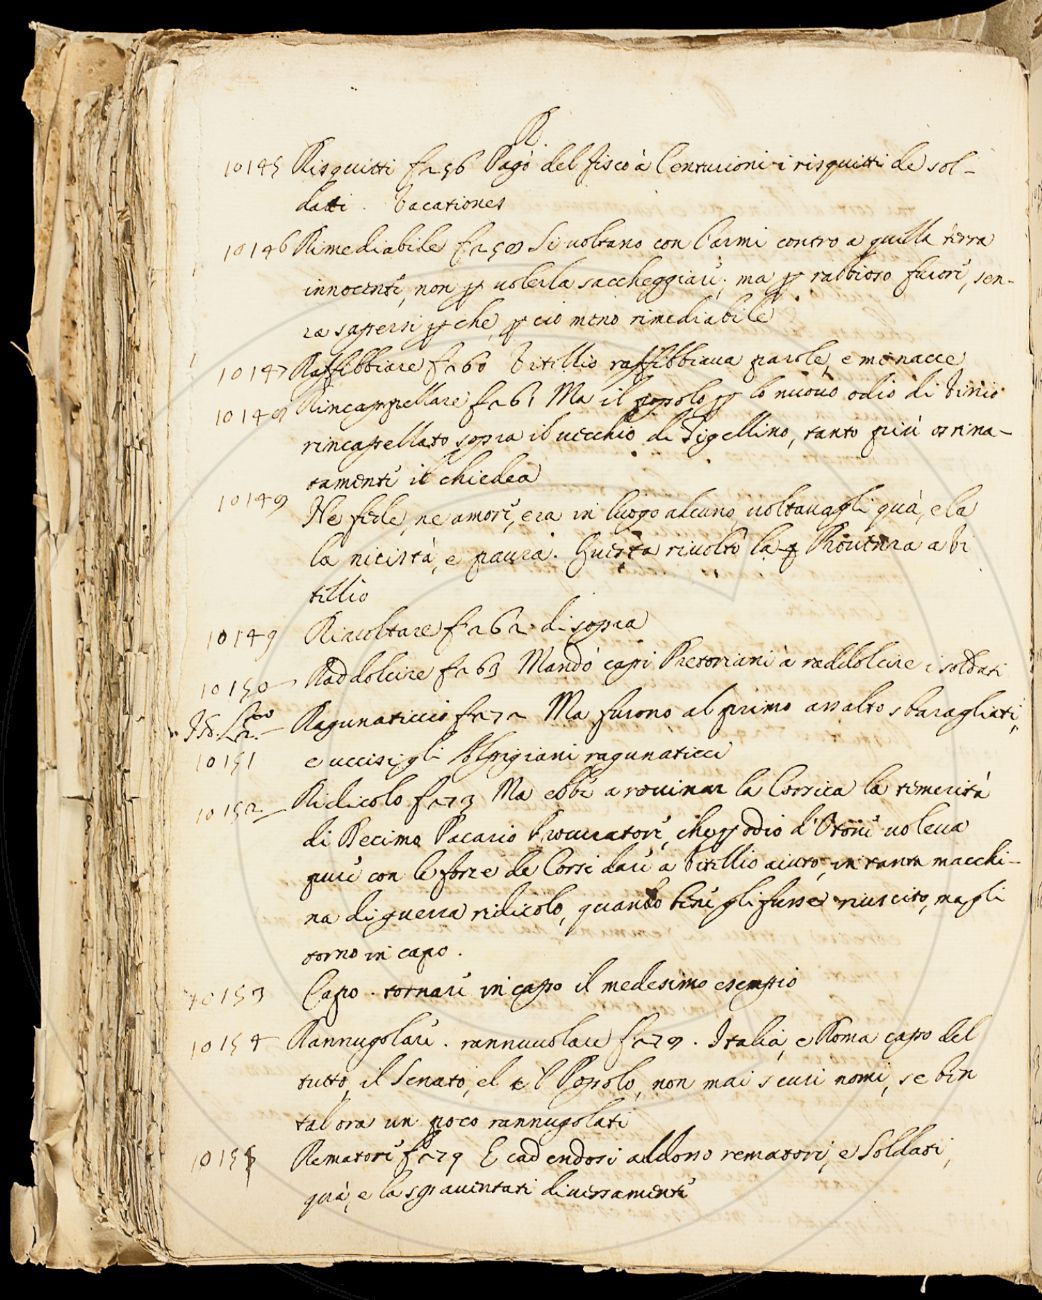 R
10145 Risquitti f 256 Pagò del fisco à Centurioni i risquitti de sol-
dati. Vacationes
10146 Rimediabile f 258 Si voltano con l'armi contro a quella terra
innocente, non p volerla saccheggiare, ma p rabbioso furore, sen-
za sapersi p che, p ciò meno rimediabile
10147 Raffibbiare f 260 Vitellio raffibbiava parole, e minacce
10148 Rincappellare f 261 Ma il popolo p lo nuovo odio di Vinio
rincappellato sopra il vecchio di Tigellino, tanto più ostina-
tamente il chiedea
10149 Ne fede, ne amore, era in luogo alcuno, voltavagli quà, e la
la necistà, e paura. Questa rivoltò la Provenza a Vi
tellio
10149 Rivoltare f 262 di sopra
10150 Raddolcire f 263 Mandò capi Pretoriani à raddolcire i soldati
Ragunaticcio f 272 Ma furono al primo assalto sbaragliati,
10151 e uccisi gli Alpigiani ragunaticci
10152 Ridicolo f 273 Ma ebbe a rovinar la Corsica la temerità
di Decimo Pacario Procuratore, che p odio d'Otone voleva
pure con le forze de Corsi dare à Vitellio aiuto, in tanta macchi-
na di guerra ridicolo, quando bene gli fusse riuscito, ma gli
torno in capo.
10153 Capo. tornare in capo il medesimo esempio
10154 Rannugolare. rannuvolare f 279. Italia, e Roma capo del
tutto, il Senato, e'l Popolo, non mai scuri nomi, se ben
tal'ora un poco rannugolati
10155 Rematore f 279 E cadendosi addosso rematori, e Soldati,
quà, e la spaventati diversamente